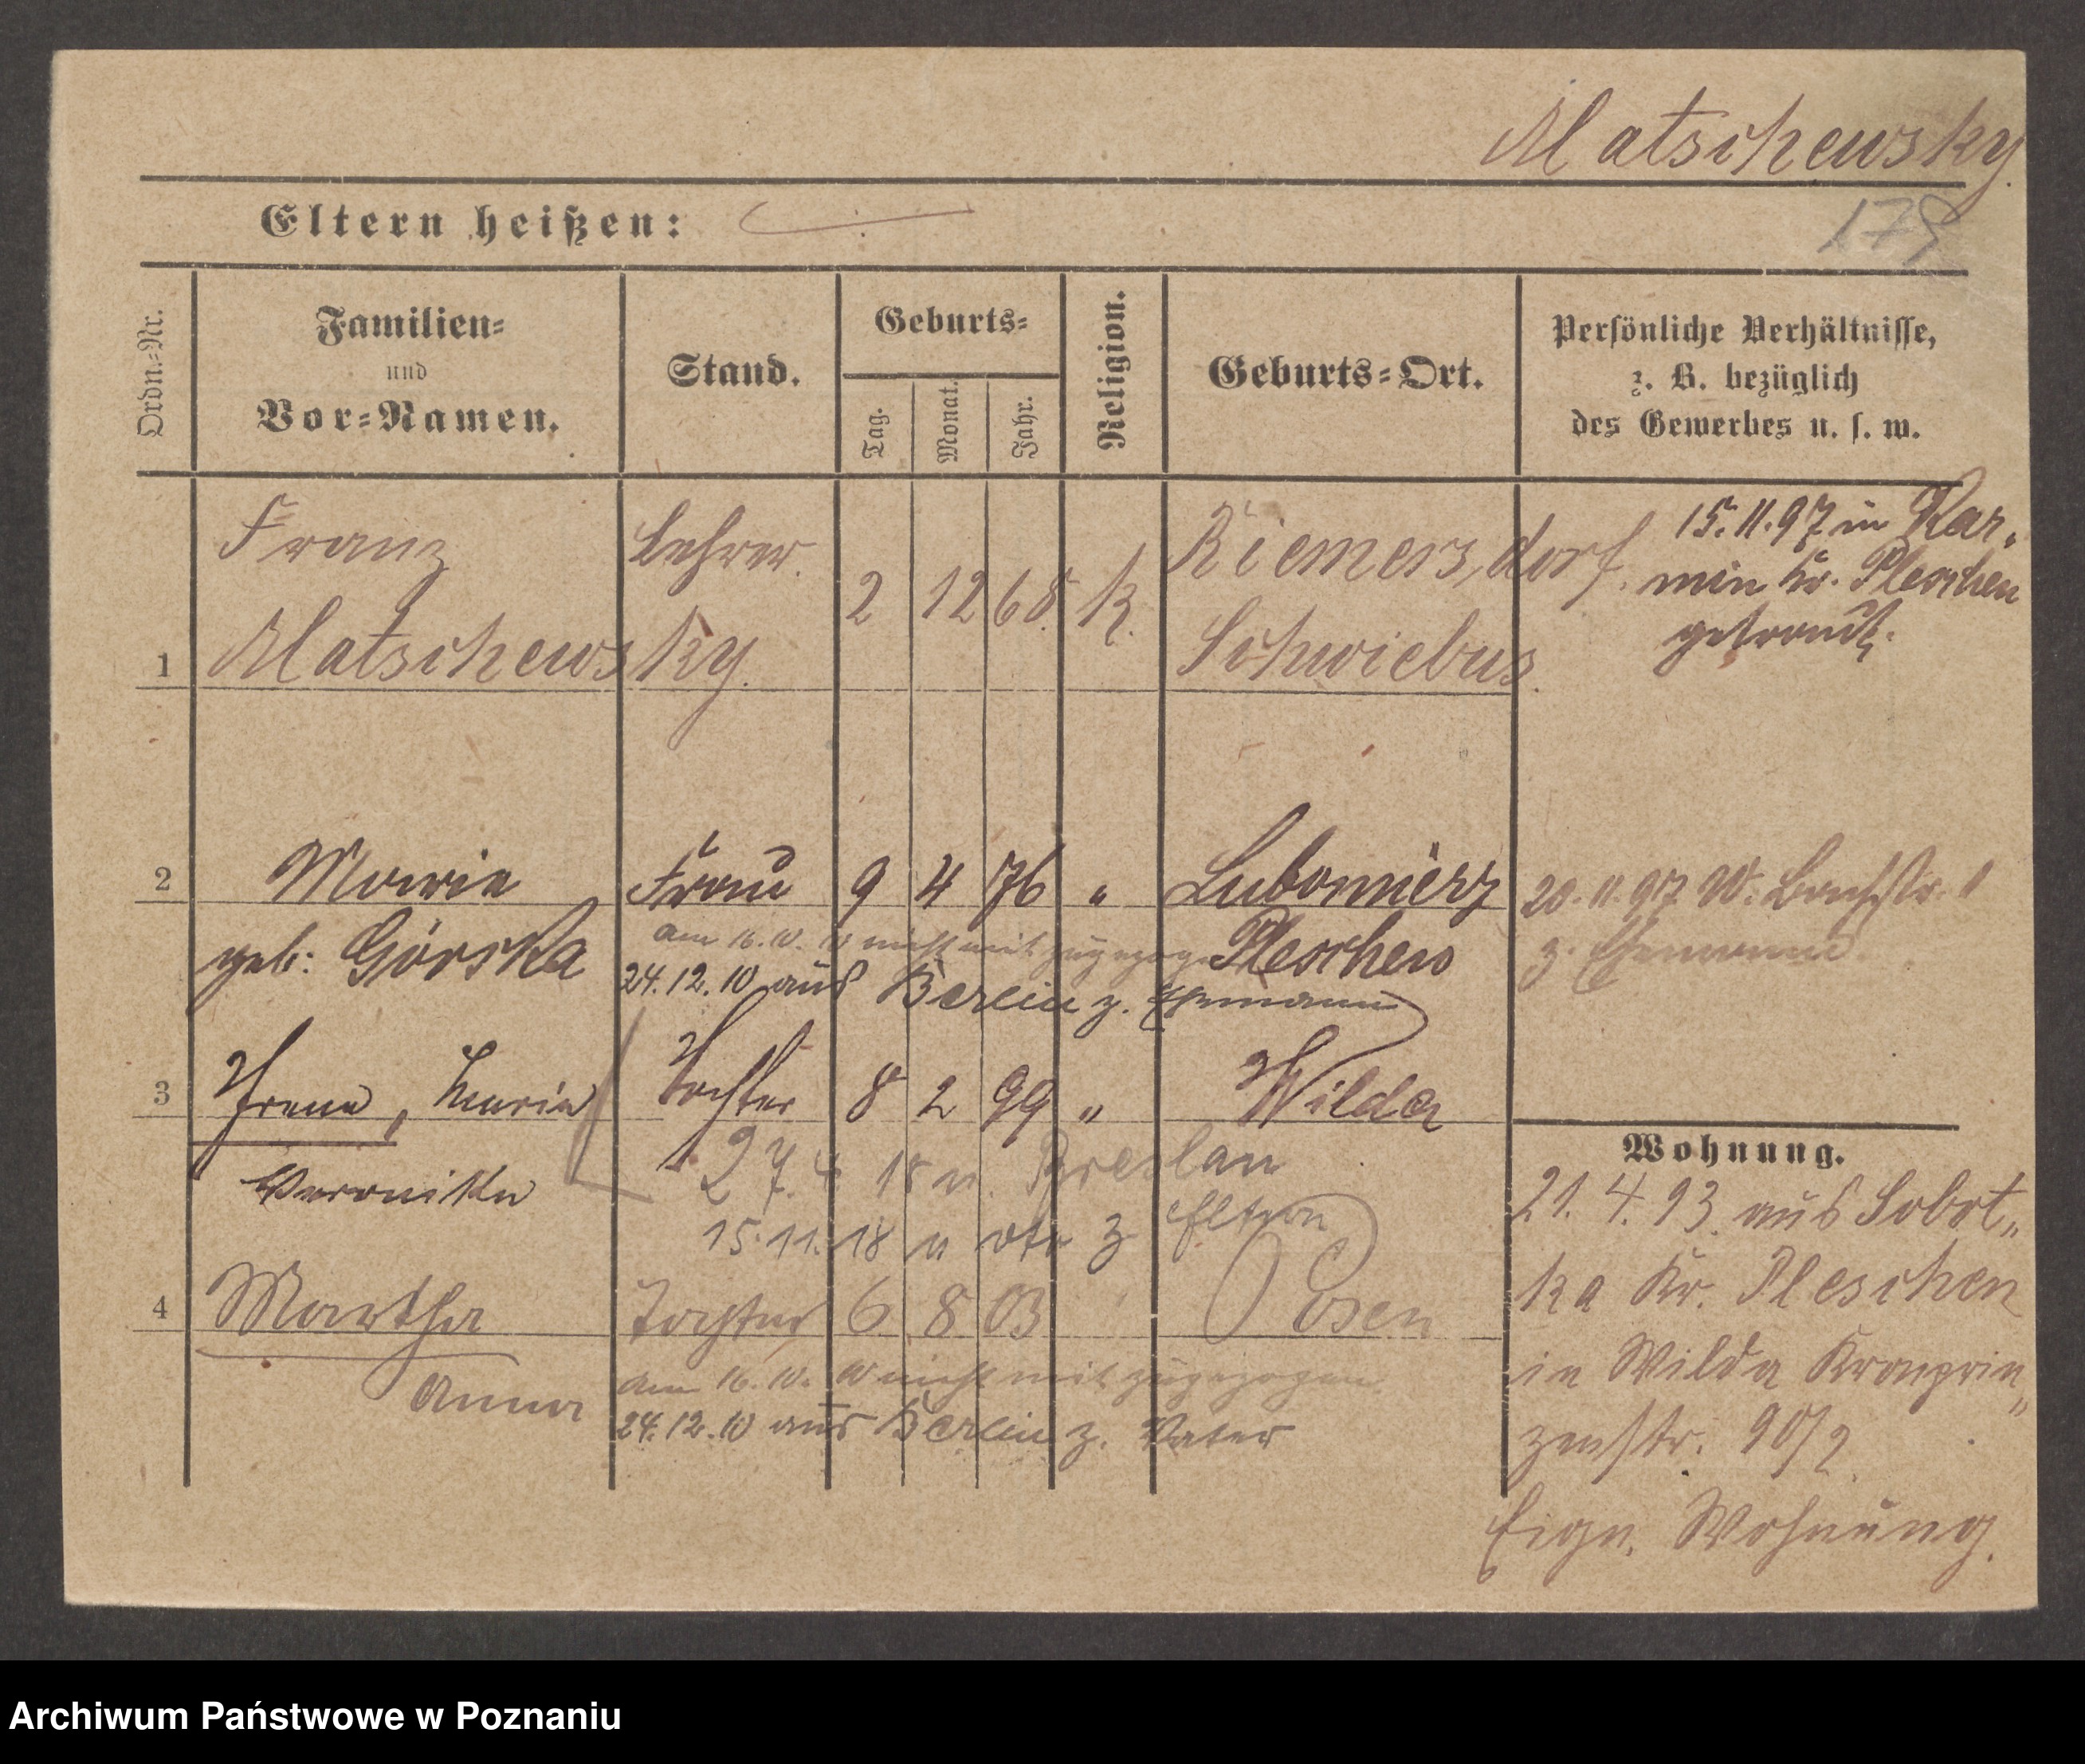 Matschewsky.
175
Eltern heißen:
Ordn.=Nr.
Familien=
und
Vor=Namen.
Stand.
Geburts=
Tag.
Monat.
Jahr.
Religion.
Geburts=Ort.
Persönliche Verhältnisse,
z. B. bezüglich
des Gewerbes u. s. w.
1
Franz
Matschewsky.
Lehrer.
2 12 68. K.
Riemersdorf.
Schwiebus.
15.11.97 in Kar„
min Kr. Pleschen
getraut.
2
Maria
geb: Górska
Frau
9 4 76 "
Lubomierz
Pleschen
20.11.97 W. Bachstr. 1
z. Ehemann.
am 16.10. 10 nicht mit zugezogen
24.12.10 aus Berlin z. Ehemann
3
Irene, Maria
Veronika
Tochter
8 2 99 "
Wilda
27. 4 18 n. Breslau
15.11.18 z Eltern
4
Martha
Anna
Tochter
6 8 03
Posen
am 16.10. 10 nicht mit zugezogen.
24.12.10 aus Berlin z. Vater
Wohnung.
21. 4. 93. aus Sobot„
ka Kr. Pleschen
in Wilda Kronprin„
zenstr. 90/2.
Eign. Wohnung.
Archiwum Państwowe w Poznaniu